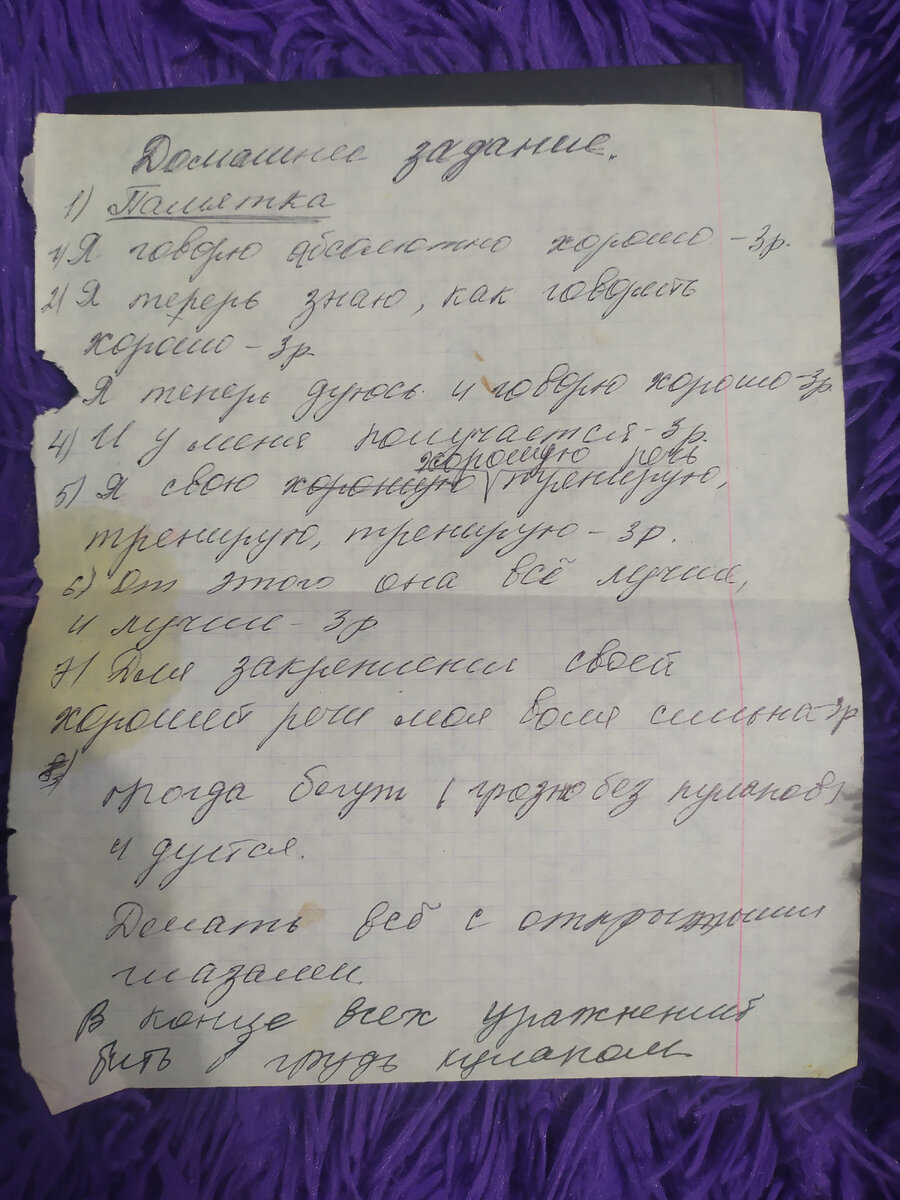 Домашнее задание.
1) Памятка
1) Я говорю абсолютно хорошо - 3р.
2) Я теперь знаю, как говорить
хорошо - 3р.
Я теперь дуюсь и говорю хорошо - 3р.
4) И у меня получается - 3р.
хорошую речь
5) Я свою хорошую тренирую,
тренирую, тренирую - 3р.
6) От этого она всё лучше,
и лучше - 3р
7) Для закрепления своей
хорошей речи моя воля сильна - 3р
8)
бегут (грозно без кулаков)
и дуется.
Делать всё с открытыми
глазами.
В конце всех упражнений
бить в грудь кулаком